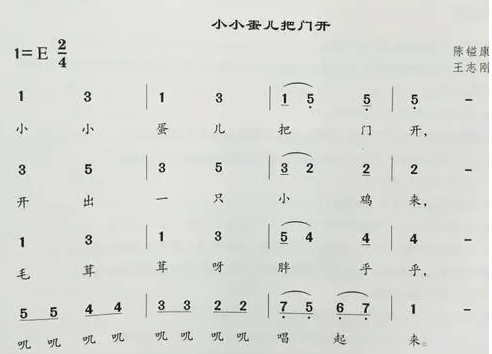 小小蛋儿把门开
1=E 2/4
陈镒康
王志刚
1 3 | 1 3 | 1 5 5 | 5 -
小 小 蛋 儿 把 门 开,
3 5 | 3 5 | 3 2 2 | 2 -
开 出 一 只 小 鸡 来,
1 3 | 1 3 | 5 4 4 | 4 -
毛 茸 茸 呀 胖 乎 乎,
5 5 4 4 | 3 3 2 2 | 7 5 6 7 | 1 -
叽 叽 叽 叽 叽 叽 叽 叽 唱 起 来。